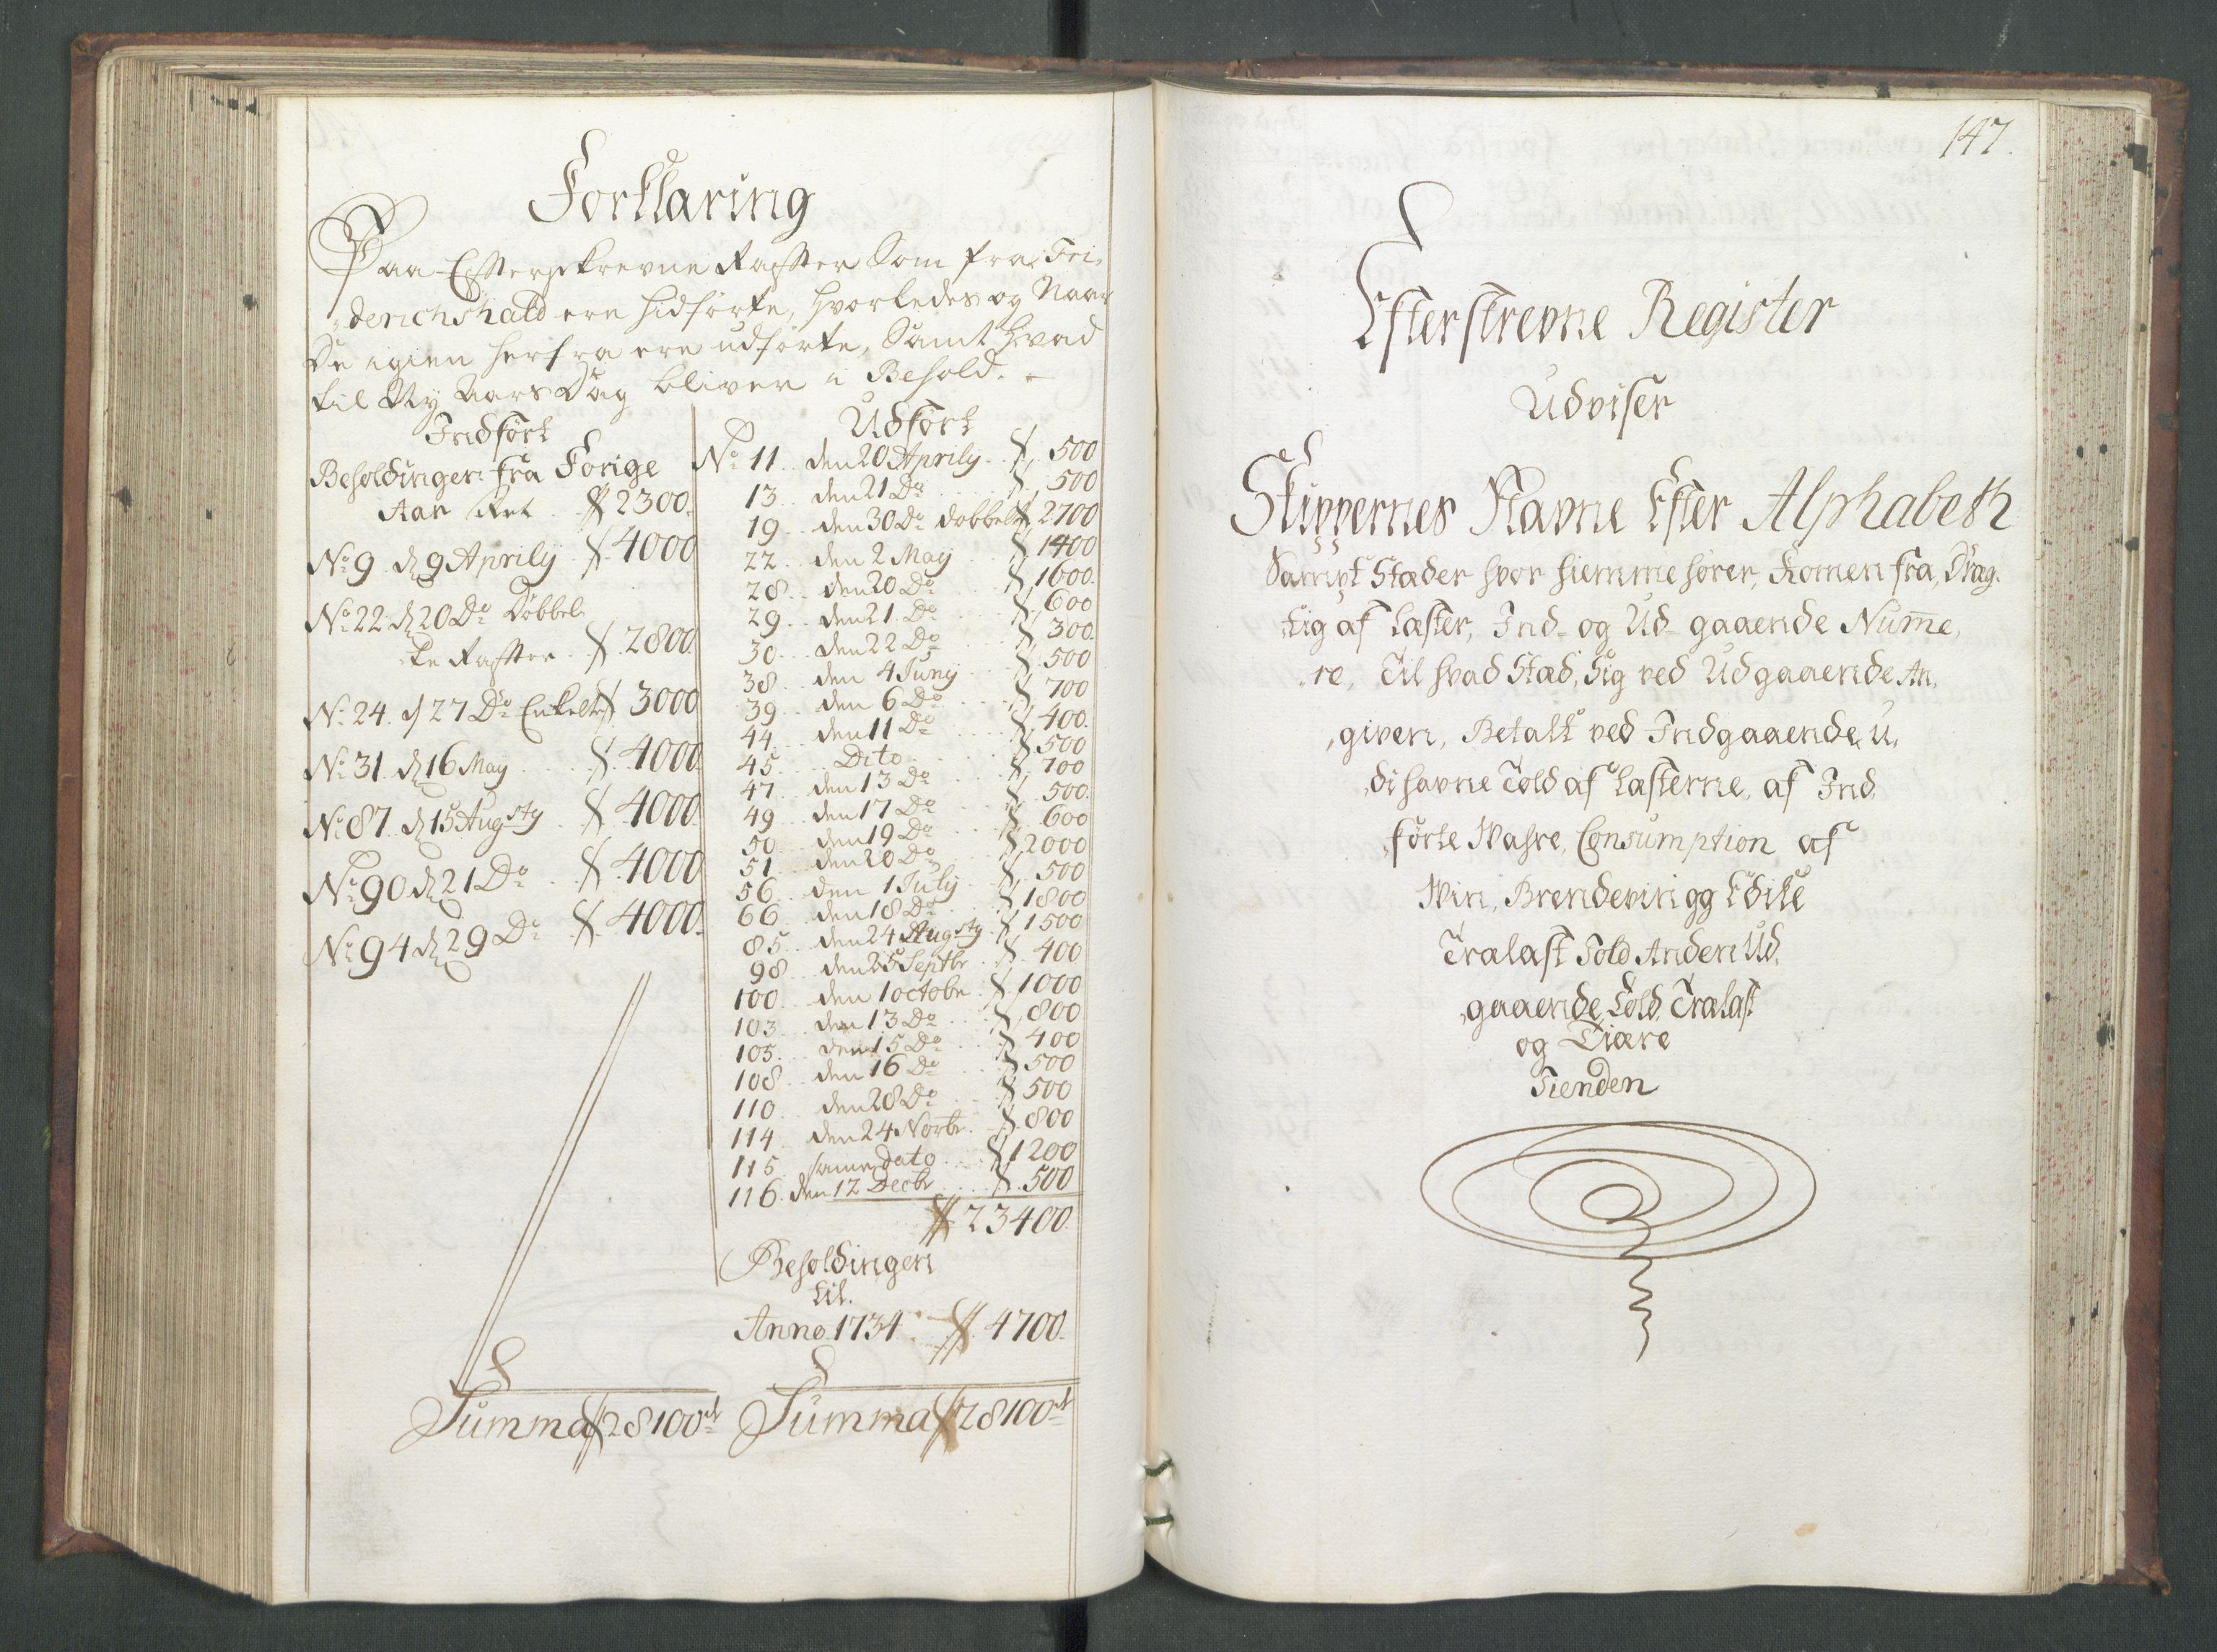 Forklaring
Paa Efterskrevne Rafter Som fra Fri-
derichshald ere hidførte, hvorledes og Naar
De igien herfra ere udførte, Samt hvad
til Ny Aars Dag bliver i Behold.
Indført
Beholdingen fra Forige
Aar 2300.
No 9 d 9 Aprily 4000
No 22 d 20 Do Dobbel-
te Rafter 2800
No 24. d 27 Do Enkelte 3000
No 31. d 16 May 4000
No 87. d 15 Augsty 4000
No 90 d 21 Do 4000
No 94 d 29 Do 4000.
Summa 28100
Udført
No 11.. den 20 Aprily 500
13.. den 21 Do 500
19.. den 30 Do dobbelt 2700
22.. den 2 May 1400
28.. den 20 Do 1600.
29.. den 21. Do 600
30.. den 22 Do 300.
38.. den 4 Juny 500
39.. den 6 Do 700
44.. den 11 Do 400.
45.. Dito 500
47.. den 13 Do 700
49.. den 17 Do 500.
50.. den 19 Do 600
51.. den 20 Do 2000
56.. den 1 July 500
66.. den 18 Do 1800
85.. den 24 Augsty 1500
98.. den 25 Septbr 400
100.. den 1 octobr 1000
103.. den 13 Do 800
105.. den 15 Do 400
108.. den 16 Do 500
110.. den 28 Do 500
114.. den 24 Novbr. 800
115. same dato 1200
116. den 12 Decbr 500
23400.
Beholdingen
til.
Anno. 1734 4700.
Summa 28100
147.
Efterskrevne Register
Udviser
Skippernes Navne Efter Alphabeth
Sampt Stæder hvor hiemmehører, Komen fra, Dræg-
tig af Læster, Ind- og Ud- gaaende Nume-
re, Til hvad Stæd, Sig ved Udgaaende An-
given, Betalt ved Indgaaende, u-
di havne Told af Læsterne, af Ind-
førte Wahre, Consumption af
Win, Brendevin og Edike
Trælast Told Anden Ud-
gaaende Told, Trælast
og Tiære
Tienden